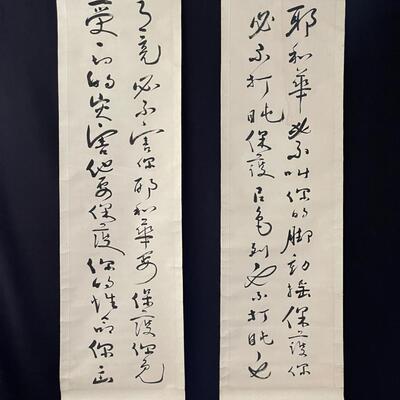 耶和華必不叫你的脚動搖保護你
必不打盹保護以色列必不打盹也
亮必不害你耶和華要保護你免
受一切的災害他要保護你的性命你出